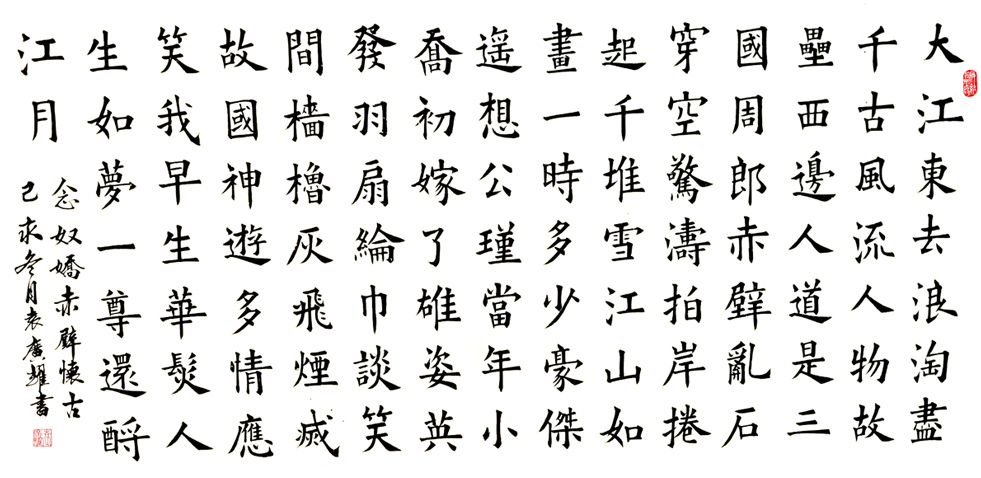 大江東去浪淘盡
千古風流人物故
壘西邊人道是三
國周郎赤壁亂石
穿空驚濤拍岸捲
起千堆雪江山如
畫一時多少豪傑
遥想公瑾當年小
喬初嫁了雄姿英
發羽扇綸巾談笑
間檣櫓灰飛煙滅
故國神遊多情應
笑我早生華髮人
生如夢一尊還酹
江月
念奴嬌赤壁懷古
己亥冬月袁廣耀書